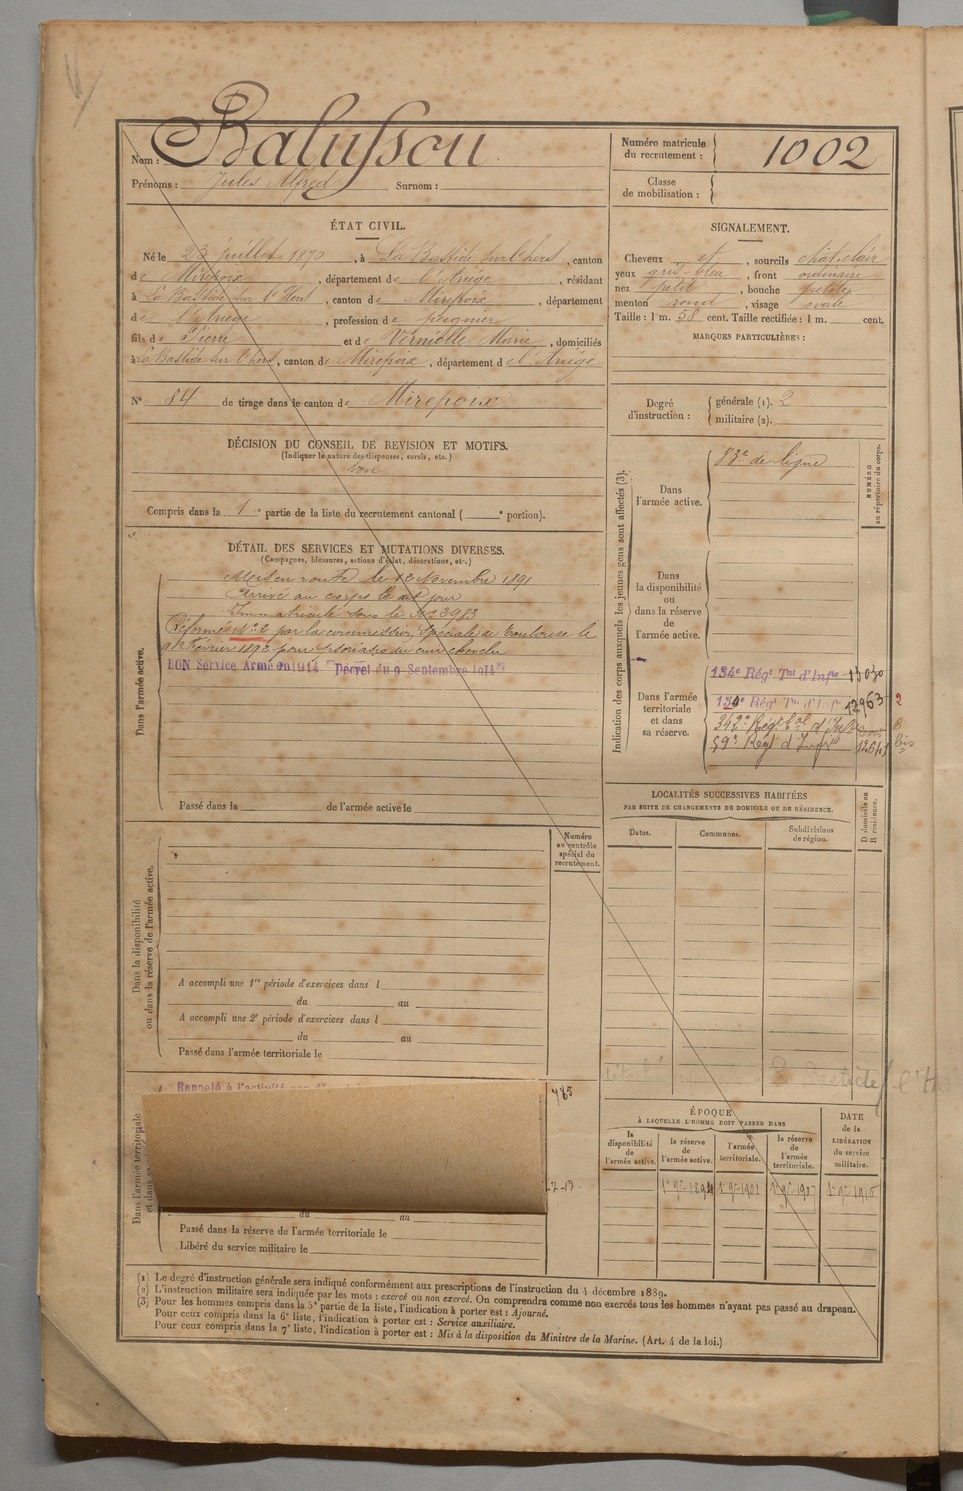 Nom : Balussou
Prénoms : Jules Alfred Surnom :
Numéro matricule du recrutement : 1002
Classe de mobilisation :
ÉTAT CIVIL.
Né le 23 juillet 1870, à La Bastide sur l'hers, canton
de Mirepoix, département de l'Ariège, résidant
à La Bastide sur l'Hers, canton de Mirepoix, département
de l'Ariège, profession de peignier
fils de Pierre et de Verniolle Marie, domiciliés
à La Bastide sur l'hers, canton de Mirepoix, département de l'Ariège
N° 84 de tirage dans le canton de Mirepoix
SIGNALEMENT.
Cheveux et, sourcils chat. clair
yeux gris-bleu, front ordinaire
nez petit, bouche petite
menton rond, visage ovale
Taille : 1 m. 58 cent. Taille rectifiée : 1 m. cent.
MARQUES PARTICULIÈRES :
Degré d'instruction : générale (1). 2
militaire (2).
DÉCISION DU CONSEIL DE REVISION ET MOTIFS.
(Indiquer la nature des dispenses, sursis, etc.)
Bon
Compris dans la 1e partie de la liste du recrutement cantonal ( e portion).
DÉTAIL DES SERVICES ET MUTATIONS DIVERSES.
(Campagnes, blessures, actions d'éclat, décorations, etc.)
Dans l'armée active.
Mis en route le 12 Novembre 1891
Arrivé au corps le dit jour
Immatriculé sous le N° 3983
Réformé N° 2 par la commission spéciale de Toulouse le
Février 1892 pour psoriasis du cuir chevelu
BON Service Armé en 1914 Décret du 9 Septembre 1914
Passé dans la de l'armée active le
Indication des corps auxquels les jeunes gens sont affectés (3).
NUMÉRO au répertoire du corps.
Dans l'armée active.
83e de ligne
Dans la disponibilité ou dans la réserve de l'armée active.
Dans l'armée territoriale et dans sa réserve.
134e Régt Tal d'Infie 13030
134e Régt Tal d'Infie 12963 2
342e Régt d'Infie
59e Régt d'Infie bis
LOCALITÉS SUCCESSIVES HABITÉES
PAR SUITE DE CHANGEMENTS DE DOMICILE OU DE RÉSIDENCE.
Dates. Communes. Subdivisions de région. D domicile ou R résidence.
Dans la disponibilité ou dans la réserve de l'armée active.
Numéro au contrôle spécial du recrutement.
A accompli une 1re période d'exercices dans l
du au
A accompli une 2e période d'exercices dans l
du au
Passé dans l'armée territoriale le
Dans l'armée territoriale
Rappelé à l'activité
du au
Passé dans la réserve de l'armée territoriale le
Libéré du service militaire le
ÉPOQUE
À LAQUELLE L'HOMME DOIT PASSER DANS
la disponibilité de l'armée active.
la réserve de l'armée active.
l'armée territoriale.
la réserve de l'armée territoriale.
DATE de la LIBÉRATION du service militaire.
1er 9bre 1894 1er 9bre 1901 1er 9bre 1907 1er 9bre 1916
(1) Le degré d'instruction générale sera indiqué conformément aux prescriptions de l'instruction du 4 décembre 1889.
(2) L'instruction militaire sera indiquée par les mots : exercé ou non exercé. On comprendra comme non exercés tous les hommes n'ayant pas passé au drapeau.
(3) Pour les hommes compris dans la 5e partie de la liste, l'indication à porter est : Ajourné.
Pour ceux compris dans la 6e liste, l'indication à porter est : Service auxiliaire.
Pour ceux compris dans la 7e liste, l'indication à porter est : Mis à la disposition du Ministre de la Marine. (Art. 4 de la loi.)